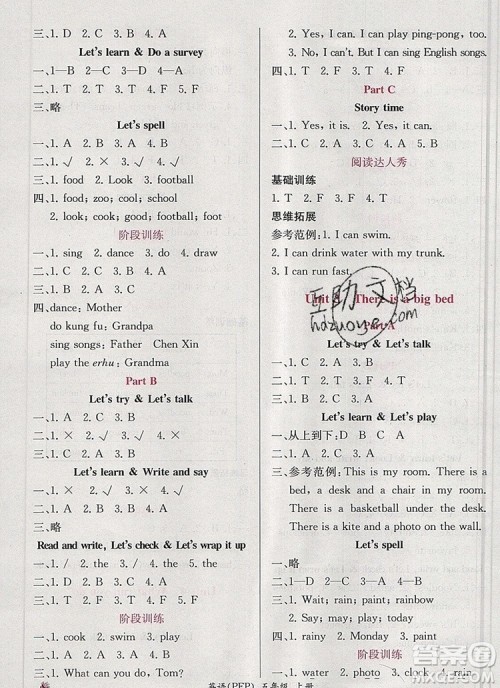 三、1. D　2. A　3. C　4. B
Let's learn & Do a survey
一、1—B　2—A　3—D　4—C
二、1. T　2. T　3. F　4. F
三、略
Let's spell
一、1. B　2. C　3. A　4. B
二、1. √　2. ×　3. √　4. √
三、1. food　2. Look　3. football
四、1. food; zoo; cool; school
2. Look; books; football; foot
阶段训练
一、1. sing　2. dance　3. do　4. draw
二、1. C　2. C　3. A　4. B
三、1. T　2. F　3. T　4. F
四、dance: Mother
do kung fu: Grandpa
sing songs: Father　Chen Xin
play the erhu: Grandma
Part B
Let's try & Let's talk
一、1. A　2. A　3. C　4. B
二、1. ×　2. √　3. ×　4. √
Let's learn & Write and say
一、1. ×　2. √　3. ×　4. √
二、1. B　2. C　3. A　4. D
三、略
Read and write, Let's check & Let's wrap it up
一、1. /the　2. the/　3. /a　4. /
二、1. C　2. B　3. A　4. D
三、1. T　2. F　3. F　4. T
阶段训练
一、1. cook　2. swim　3. play
二、1. C　2. B　3. A　4. A
三、1. What can you do, Tom?
2. Yes, I can. I can play ping-pong.
3. No, I can't. But I can sing English songs.
四、1. T　2. T　3. F　4. F
Part C
Story time
一、1. Yes, it is.　2. Yes, it can.
3. Yes, it can.
阅读达人秀
基础训练
1. T　2. F　3. F　4. T
思维拓展
参考范例: 1. I can swim.
2. I can drink water with my trunk.
3. I can run fast.
Unit　There is a big bed
Part A
Let's try & Let's talk
一、1. A　2. C　3. B
二、1. B　2. C　3. A　4. D
Let's learn & Let's play
一、从上到下: D　A　C　B
二、1. A　2. B　3. B　4. A
三、参考范例: This is my room. There is a
bed, a desk and a chair in my room.
There is a basketball under the desk.
There is a kite and a photo on the wall.
Let's spell
一、略
二、1. C　2. D　3. A　4. B
三、1. Wait; rain; paint; rainbow
2. Say; may; play; today
四、1. rainy　2. Monday　3. paint
阶段训练
一、1. water　2. photo　3. clock
英语(PEP)　五年级　上册
互助文档
hdzuoye.com